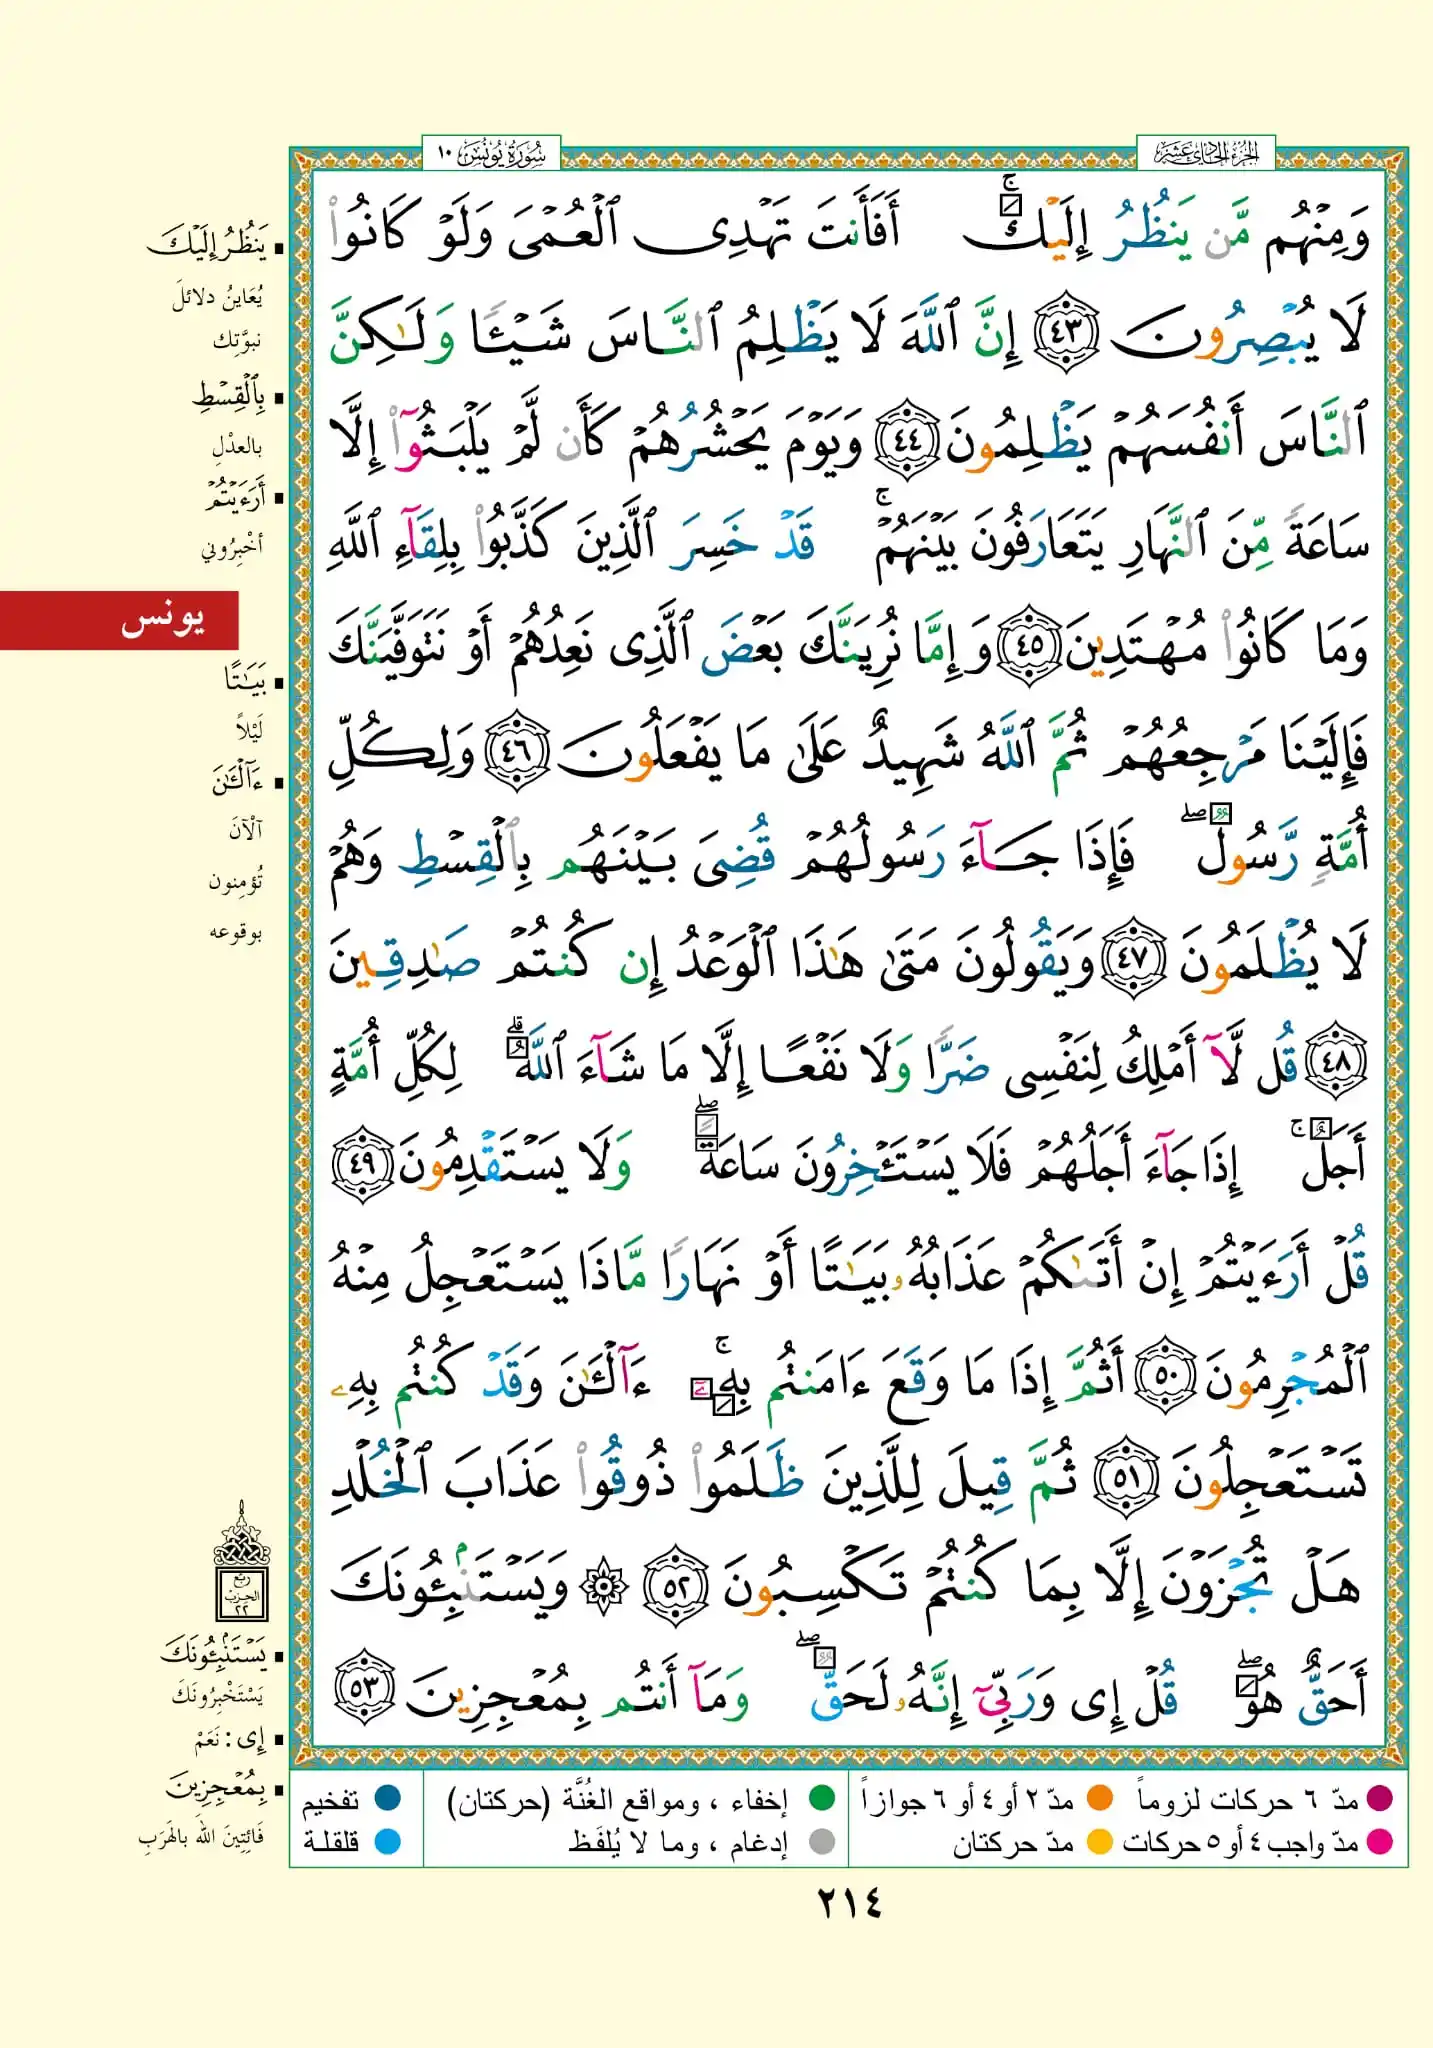 الجزء الحادي عشر
سورة يونس ١٠
وَمِنْهُم مَّن يَنظُرُ إِلَيْكَ ۚ أَفَأَنتَ تَهْدِى ٱلْعُمْىَ وَلَوْ كَانُوا۟
لَا يُبْصِرُونَ ٤٣ إِنَّ ٱللَّهَ لَا يَظْلِمُ ٱلنَّاسَ شَيْـًٔا وَلَـٰكِنَّ
ٱلنَّاسَ أَنفُسَهُمْ يَظْلِمُونَ ٤٤ وَيَوْمَ يَحْشُرُهُمْ كَأَن لَّمْ يَلْبَثُوٓا۟ إِلَّا
سَاعَةً مِّنَ ٱلنَّهَارِ يَتَعَارَفُونَ بَيْنَهُمْ ۚ قَدْ خَسِرَ ٱلَّذِينَ كَذَّبُوا۟ بِلِقَآءِ ٱللَّهِ
وَمَا كَانُوا۟ مُهْتَدِينَ ٤٥ وَإِمَّا نُرِيَنَّكَ بَعْضَ ٱلَّذِى نَعِدُهُمْ أَوْ نَتَوَفَّيَنَّكَ
فَإِلَيْنَا مَرْجِعُهُمْ ثُمَّ ٱللَّهُ شَهِيدٌ عَلَىٰ مَا يَفْعَلُونَ ٤٦ وَلِكُلِّ
أُمَّةٍ رَّسُولٌ ۖ فَإِذَا جَآءَ رَسُولُهُمْ قُضِىَ بَيْنَهُم بِٱلْقِسْطِ وَهُمْ
لَا يُظْلَمُونَ ٤٧ وَيَقُولُونَ مَتَىٰ هَـٰذَا ٱلْوَعْدُ إِن كُنتُمْ صَـٰدِقِينَ
٤٨ قُل لَّآ أَمْلِكُ لِنَفْسِى ضَرًّا وَلَا نَفْعًا إِلَّا مَا شَآءَ ٱللَّهُ ۗ لِكُلِّ أُمَّةٍ
أَجَلٌ ۚ إِذَا جَآءَ أَجَلُهُمْ فَلَا يَسْتَـْٔخِرُونَ سَاعَةً ۖ وَلَا يَسْتَقْدِمُونَ ٤٩
قُلْ أَرَءَيْتُمْ إِنْ أَتَىٰكُمْ عَذَابُهُۥ بَيَـٰتًا أَوْ نَهَارًا مَّاذَا يَسْتَعْجِلُ مِنْهُ
ٱلْمُجْرِمُونَ ٥٠ أَثُمَّ إِذَا مَا وَقَعَ ءَامَنتُم بِهِۦٓ ۚ ءَآلْـَٔـٰنَ وَقَدْ كُنتُم بِهِۦ
تَسْتَعْجِلُونَ ٥١ ثُمَّ قِيلَ لِلَّذِينَ ظَلَمُوا۟ ذُوقُوا۟ عَذَابَ ٱلْخُلْدِ
هَلْ تُجْزَوْنَ إِلَّا بِمَا كُنتُمْ تَكْسِبُونَ ٥٢ ۞ وَيَسْتَنۢبِـُٔونَكَ
أَحَقٌّ هُوَ ۖ قُلْ إِى وَرَبِّىٓ إِنَّهُۥ لَحَقٌّ ۖ وَمَآ أَنتُم بِمُعْجِزِينَ ٥٣
يَنظُرُ إِلَيْكَ
يُعَاينُ دلائلَ
نبوَّتِك
بِٱلْقِسْطِ
بالعدْلِ
أَرَءَيْتُمْ
أخْبِرُوني
يونس
بَيَـٰتًا
لَيْلاً
ءَآلْـَٔـٰنَ
آلْآنَ
تُؤمِنون
بوقوعه
ربع
الحزب
٢٢
يَسْتَنۢبِـُٔونَكَ
يَسْتَخْبِرُونَكَ
إِى : نَعَمْ
بِمُعْجِزِينَ
فَائِتِينَ الله بالهَرَبِ
مدّ ٦ حركات لزوماً مدّ ٢ أو ٤ أو ٦ جوازاً إخفاء ، ومواقع الغُنَّة (حركتان) تفخيم
مدّ واجب ٤ أو ٥ حركات مدّ حركتان إدغام ، وما لا يُلفَظ قلقلة
٢١٤